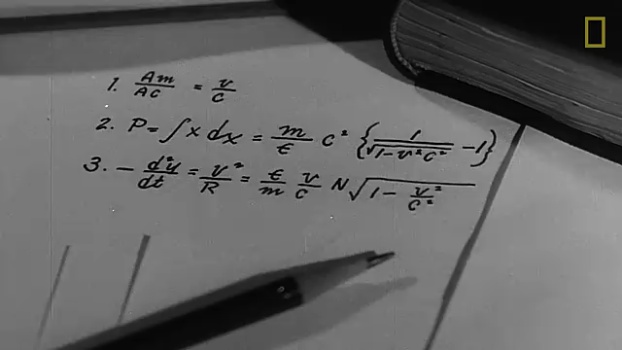 1. Am/Ac = v/c
2. P = ∫x dx = m/ϵ c² {1/√1-v²c² -1}
3. - d²y/dt = v²/R = ϵ/m v/c N√1 - v²/c²